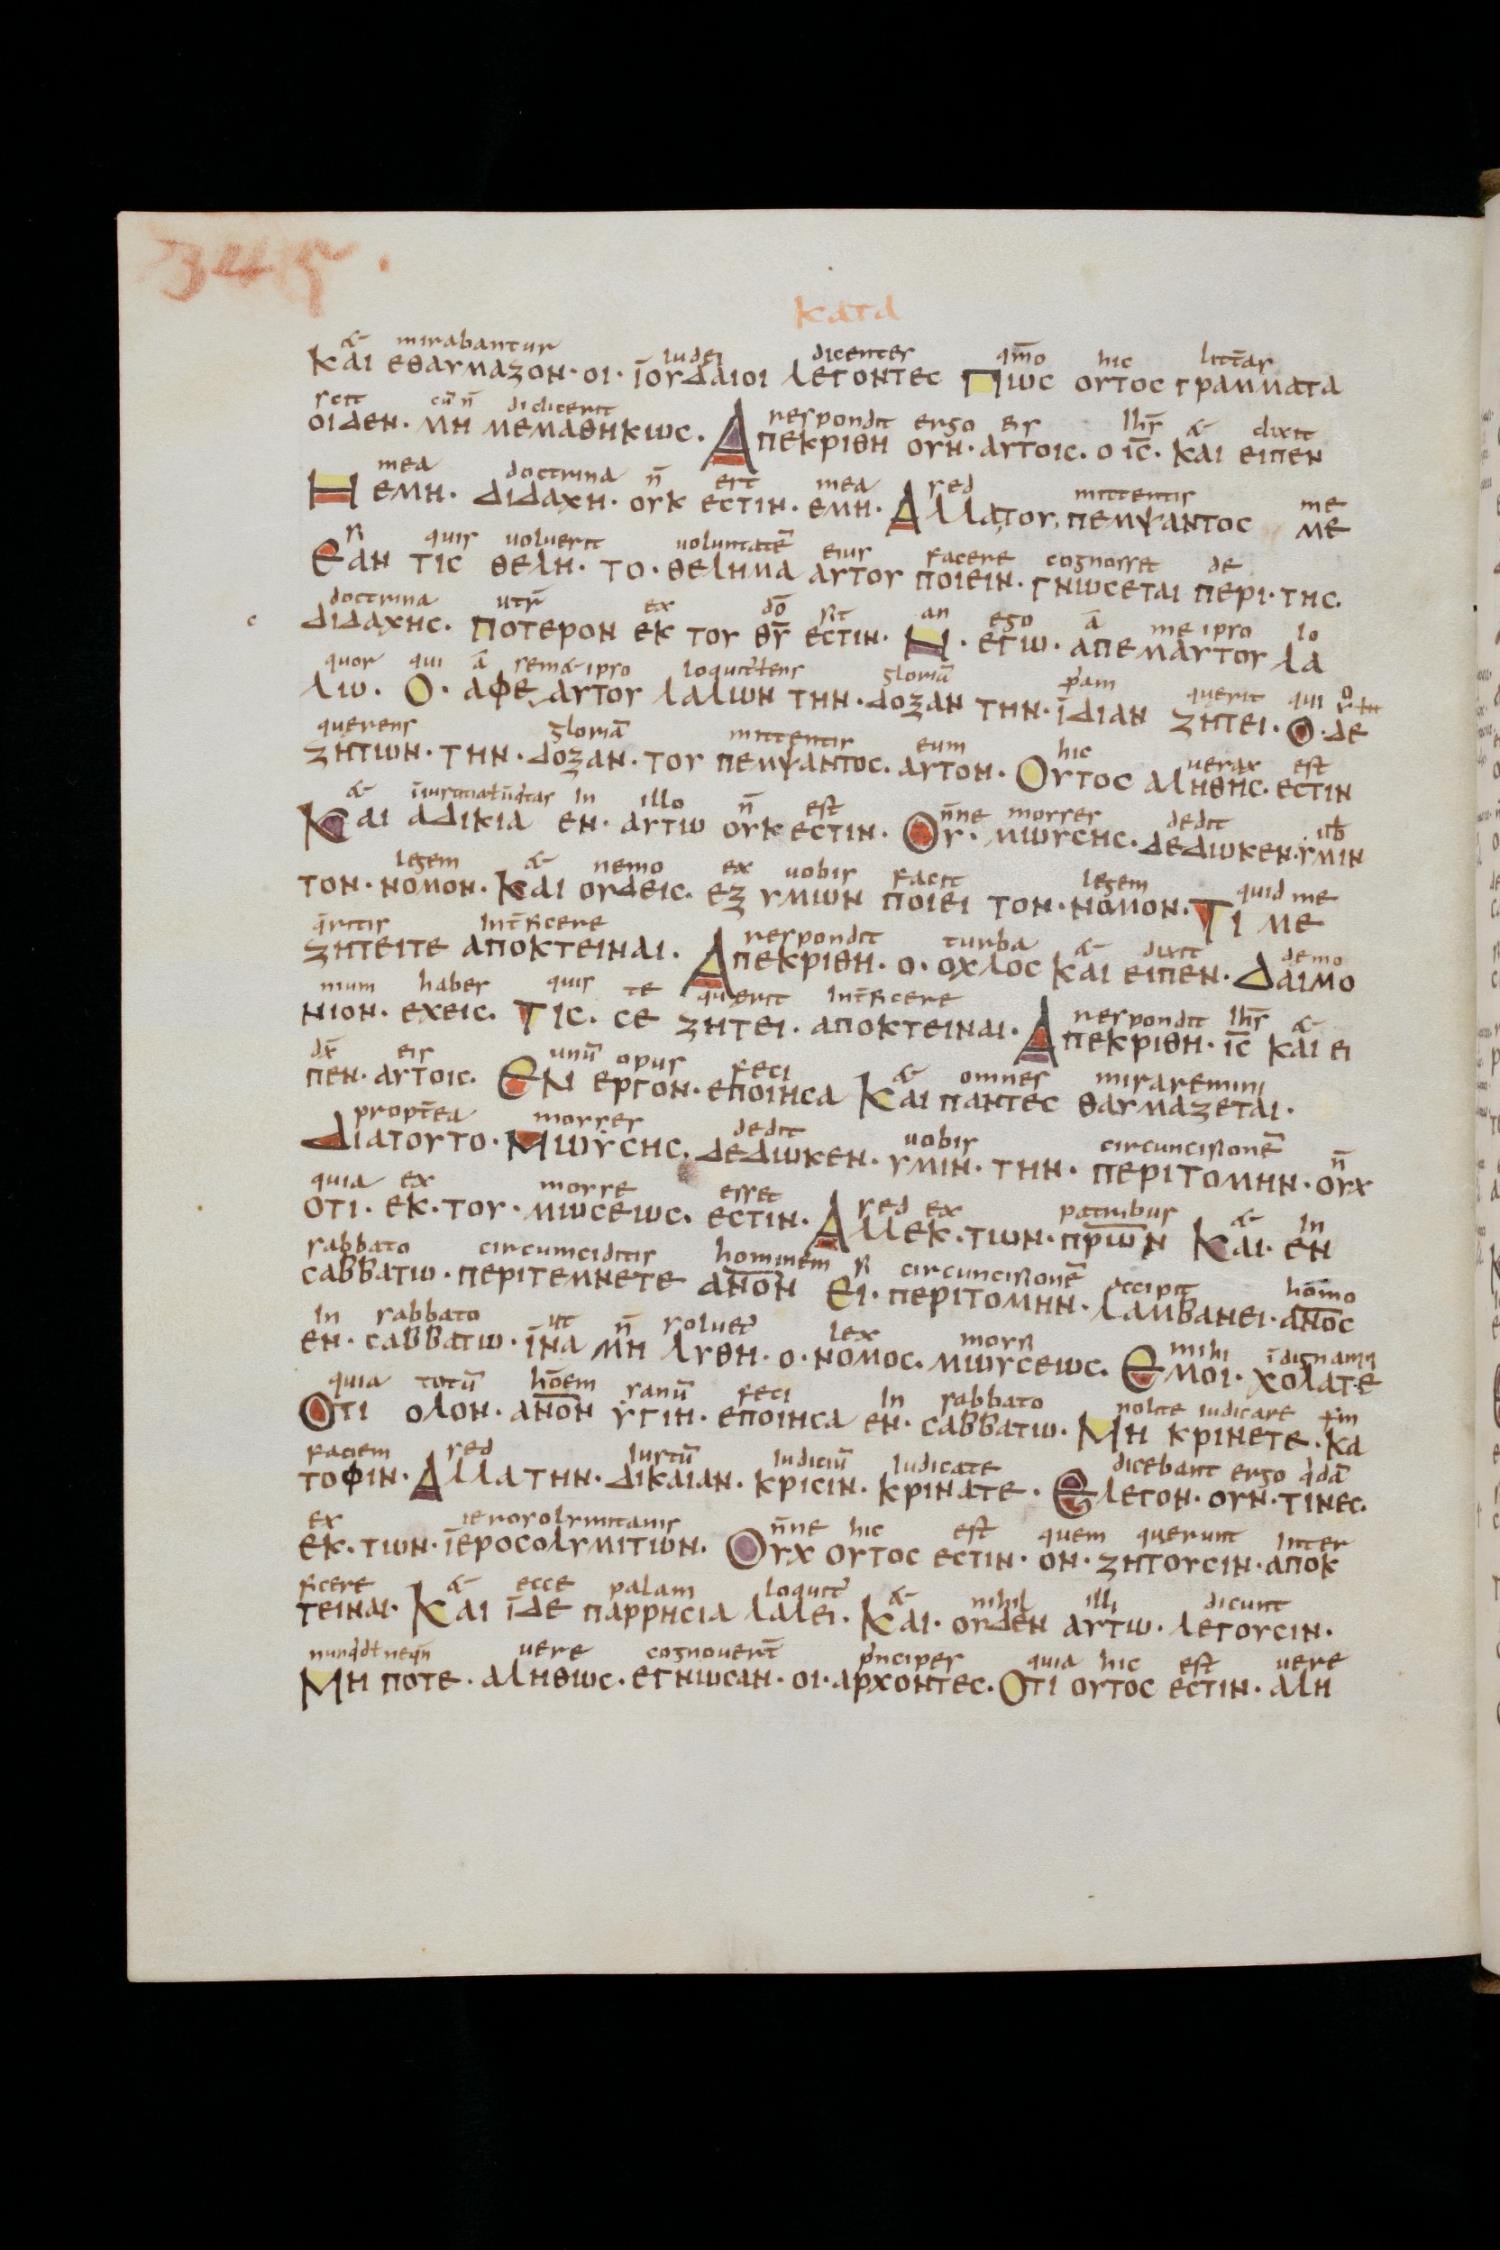 345.
kata
& mirabantur iudei dicentes qm̄o hic litt̄as
ΚΑΙ ΕΘΑΥΜΑΖΟΝ· ΟΙ· ΪΟΥΔΑΙΟΙ ΛΕΓΟΝΤΕC ΠΩC ΟΥΤΟC ΓΡΑΜΜΑΤΑ
scit cū n̄ didicerit respondit ergo eis ih̄s & dixit
ΟΙΔΕΝ· ΜΗ ΜΕΜΑΘΗΚΩC· ΑΠΕΚΡΙΘΗ ΟΥΝ· ΑΥΤΟΙC· Ο ΙC̄· ΚΑΙ ΕΙΠΕΝ
mea doctrina n̄ est mea sed mittentis me
Η ΕΜΗ· ΔΙΔΑΧΗ· ΟΥΚ ΕCΤΙΝ· ΕΜΗ· ΑΛΛΑΤΟΥ ΠΕΜΨΑΝΤΟC ΜΕ
si quis voluerit voluntatē eius facere cognosset de
ΕΑΝ ΤΙC ΘΕΛΗ· ΤΟ· ΘΕΛΗΜΑ ΑΥΤΟΥ ΠΟΙΕΙΝ· ΓΝΩCΕΤΑΙ ΠΕΡΙ· ΤΗC·
doctrina utr̄ ex dō sit an ego ā me ipso lo
ΔΙΔΑΧΗC· ΠΟΤΕΡΟΝ ΕΚ ΤΟΥ ΘῩ ΕCΤΙΝ· Η· ΕΓΩ· ΑΠΕΜΑΥΤΟΥ ΛΑ
quor qui ā sem& ipso loquit̄ tens gloriā p̄am querit qui
ΛΩ· Ο· ΑΦΕΑΥΤΟΥ ΛΑΛΩΝ ΤΗΝ· ΔΟΞΑΝ ΤΗΝ· ΪΔΙΑΝ ΖΗΤΕΙ· Ο· ΔΕ
querens gloriā mittentis eum hic verax est
ΖΗΤΩΝ· ΤΗΝ· ΔΟΞΑΝ· ΤΟΥ ΠΕΜΨΑΝΤΟC· ΑΥΤΟΝ· ΟΥΤΟC ΑΛΗΘΗC· ΕCΤΙΝ
& in illo n̄ est n̄ne moyses dedit
ΚΑΙ ΑΔΙΚΙΑ ΕΝ· ΑΥΤΩ ΟΥΚ ΕCΤΙΝ· ΟΥ· ΜΩΥCΗC· ΔΕΔΩΚΕΝ· ΥΜΙΝ
legem & nemo ex vobis facit legem quid me
ΤΟΝ· ΝΟΜΟΝ· ΚΑΙ ΟΥΔΕΙC· ΕΞ ΥΜΩΝ ΠΟΙΕΙ ΤΟΝ· ΝΟΜΟΝ· ΤΙ ΜΕ
q̄ritis int̄ficere respondit turba & dixit demo
ΖΗΤΕΙΤΕ ΑΠΟΚΤΕΙΝΑΙ· ΑΠΕΚΡΙΘΗ· Ο· ΟΧΛΟC ΚΑΙ ΕΙΠΕΝ· ΔΑΙΜΟ
nium habes quis te querit int̄ficere respondit ih̄s &
ΝΙΟΝ· ΕΧΕΙC· ΤΙC· CΕ ΖΗΤΕΙ· ΑΠΟΚΤΕΙΝΑΙ· ΑΠΕΚΡΙΘΗ· ΙC̄ ΚΑΙ ΕΙ
dx̄ eis unū opus feci & omnes miraremini
ΠΕΝ· ΑΥΤΟΙC· ΕΝ ΕΡΓΟΝ· ΕΠΟΙΗCΑ ΚΑΙ ΠΑΝΤΕC ΘΑΥΜΑΖΕΤΑΙ·
propt̄ea moyses dedit vobis circuncisionē n̄
ΔΙΑΤΟΥΤΟ· ΜΩΥCΗC· ΔΕΔΩΚΕΝ· ΥΜΙΝ· ΤΗΝ· ΠΕΡΙΤΟΜΗΝ· ΟΥΧ
quia ex moyse esset sed ex patribus & in
ΟΤΙ· ΕΚ· ΤΟΥ· ΜΩCΕΩC· ΕCΤΙΝ· ΑΛΛΕΚ· ΤΩΝ· ΠΡ̄Ω̄Ν ΚΑΙ· ΕΝ
sabbato circumciditis hominem si circuncisionē accipit homo
CΑΒΒΑΤΩ· ΠΕΡΙΤΕΜΝΕΤΕ ΑΝ̄Ο̄Ν ΕΙ· ΠΕΡΙΤΟΜΗΝ· ΛΑΜΒΑΝΕΙ· ΑΝ̄Ο̄C
in sabbato ut n̄ solvet̄ lex moysi mihi īdignamī
ΕΝ· CΑΒΒΑΤΩ· ΪΝΑ ΜΗ ΛΥΘΗ· Ο· ΝΟΜΟC· ΜΩΥCΕΩC· ΕΜΟΙ· ΧΟΛΑΤΕ
quia totū hōem sanū feci in sabbato nolite iudicare
ΟΤΙ ΟΛΟΝ· ΑΝ̄Ο̄Ν ΥΓΙΗ· ΕΠΟΙΗCΑ ΕΝ· CΑΒΒΑΤΩ· ΜΗ ΚΡΙΝΕΤΕ· ΚΑ
faciem sed iustū iudiciū iudicate dicebant ergo q̄dā
ΤΟΦΙΝ· ΑΛΛΑ ΤΗΝ· ΔΙΚΑΙΑΝ· ΚΡΙCΙΝ· ΚΡΙΝΑΤΕ· ΕΛΕΓΟΝ· ΟΥΝ· ΤΙΝΕC·
ex ierosolymitanis n̄ne hic est quem querunt inter
ΕΚ· ΤΩΝ· ΪΕΡΟCΟΛΥΜΙΤΩΝ· ΟΥΧ ΟΥΤΟC ΕCΤΙΝ· ΟΝ· ΖΗΤΟΥCΙΝ· ΑΠΟΚ
ficere & ecce palam loquit̄ & nihil illi dicunt
ΤΕΙΝΑΙ· ΚΑΙ ΪΔΕ ΠΑΡΡΗCΙΑ ΛΑΛΕΙ· ΚΑΙ· ΟΥΔΕΝ ΑΥΤΩ· ΛΕΓΟΥCΙΝ·
vere cognover̄t p̄ncipes quia hic est vere
ΜΗ ΠΟΤΕ· ΑΛΗΘΩC· ΕΓΝΩCΑΝ· ΟΙ· ΑΡΧΟΝΤΕC· ΟΤΙ ΟΥΤΟC ΕCΤΙΝ· ΑΛΗ